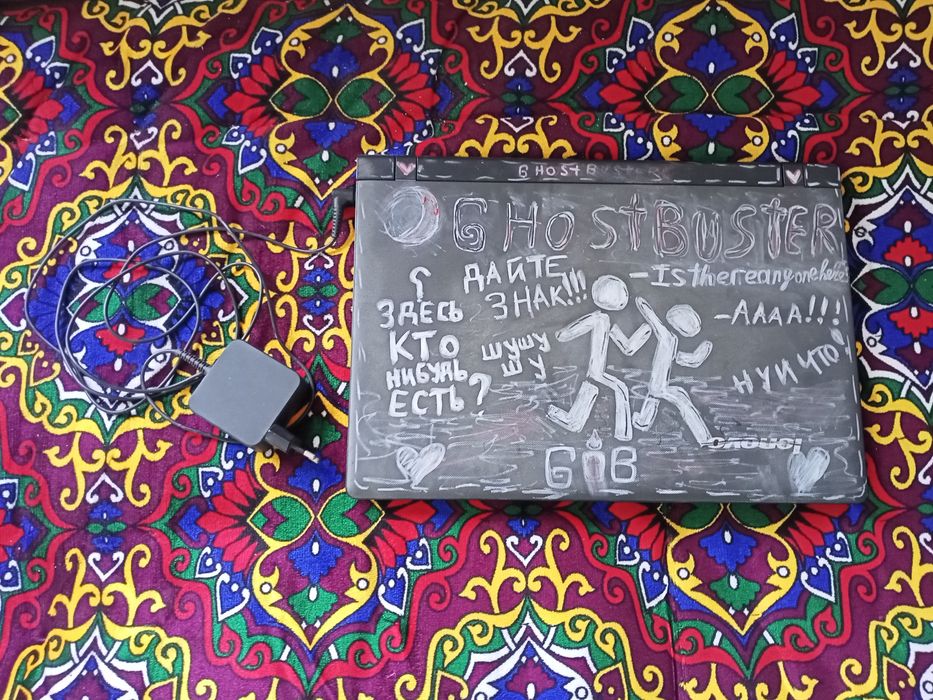 GHOSTBUSTERS
GHOSTBUSTER
ДАЙТЕ
ЗНАК!!!
- Is there anyone here?
¿
ЗДЕСЬ
КТО
НИБУДЬ
ЕСТЬ?
ШУШУ
ШУ
У
- АААА!!!
НУ И ЧТО
lenovo
GOB